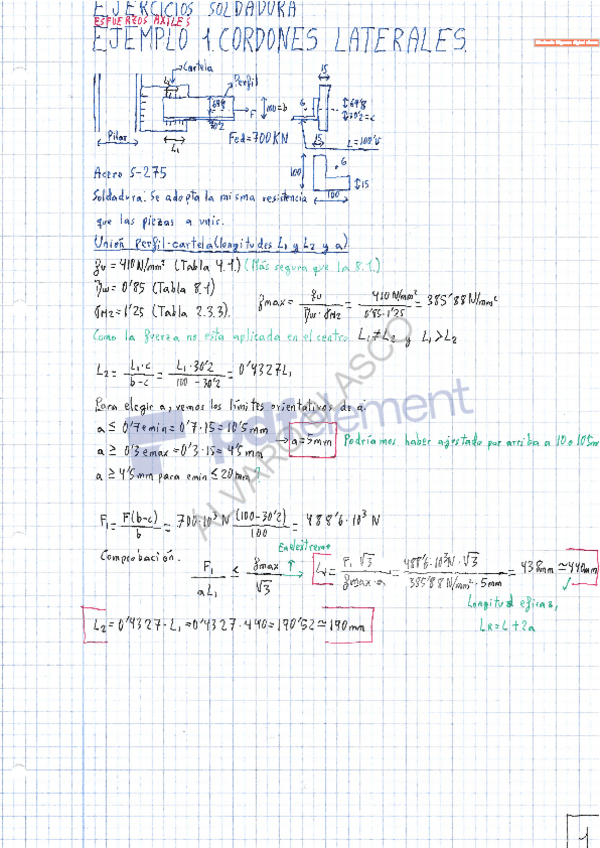 EJERCICIOS SOLDADURA
ESFUERZOS AXILES
EJEMPLO 1. CORDONES LATERALES.
Cartela
Perfil
L2
69'8
30'2
100=b
F
Fed=700KN
L1
Pilar
15
G
69'8
30'2=c
15
L=100'15
100
G
15
100
Acero S-275
Soldadura: Se adopta la misma resistencia
que las piezas a unir.
Unión perfil-cartela (longitudes L1 y L2 y a)
fu = 410 N/mm² (Tabla 4.1.) (Más segura que la 8.1.)
βw = 0'85 (Tabla 8.1)
γM2 = 1'25 (Tabla 2.3.3).
fmax = fu / βw · γM2 = 410 N/mm² / 0'85·1'25 = 385'88 N/mm²
Como la fuerza no esta aplicada en el centro L1 ≠ L2 y L1 > L2
L2 = L1·c / b-c = L1·30'2 / 100-30'2 = 0'4327 L1
Para elegir a, vemos los límites orientativos de a.
a ≤ 0'7 emin = 0'7·15 = 10'5 mm
a ≥ 0'3 emax = 0'3·15 = 4'5 mm → a = 5mm Podríamos haber ajustado por arriba a 10 o 10'5m
a ≥ 4'5 mm para emin ≤ 20mm
F1 = F(b-c) / b = 700·10³ N (100-30'2) / 100 = 488'6·10³ N
Comprobación.
En el extremo
F1 / aL1 ≤ fmax / √3
L1 = F1 √3 / fmax·a = 488'6·10³N·√3 / 385'88 N/mm²·5mm = 438mm ≃ 440mm
Longitud eficaz,
LR = L + 2a
L2 = 0'4327·L1 = 0'4327·440 = 190'52 ≃ 190mm
pdfelement
ALVARO BLASCO
1